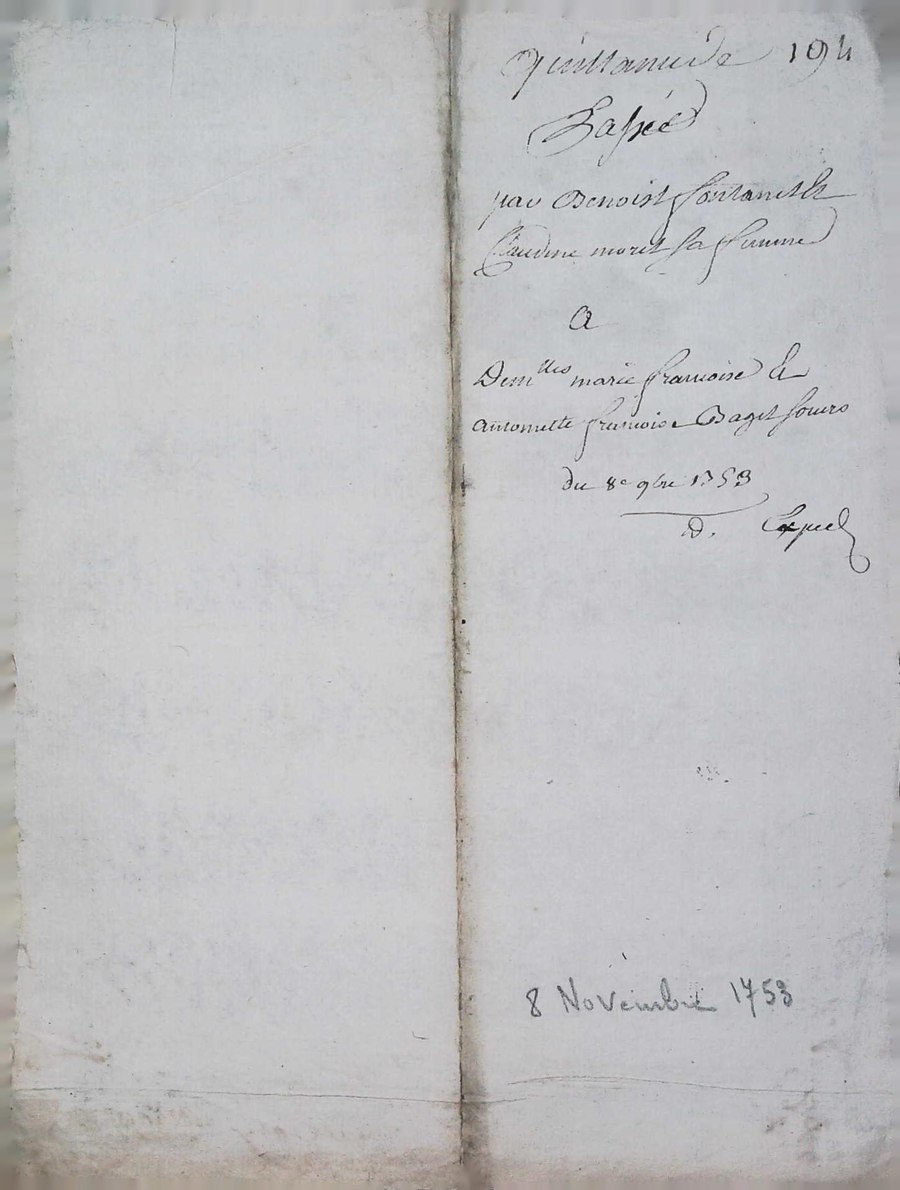 Quittance de 194
Passée
par Benoist fontanet &
Claudine moret sa femme
A
Dem lles marie francoise &
antoinette francoise Baget soeurs
du 8e 9bre 1753
D. Expéd
8 Novembre 1753